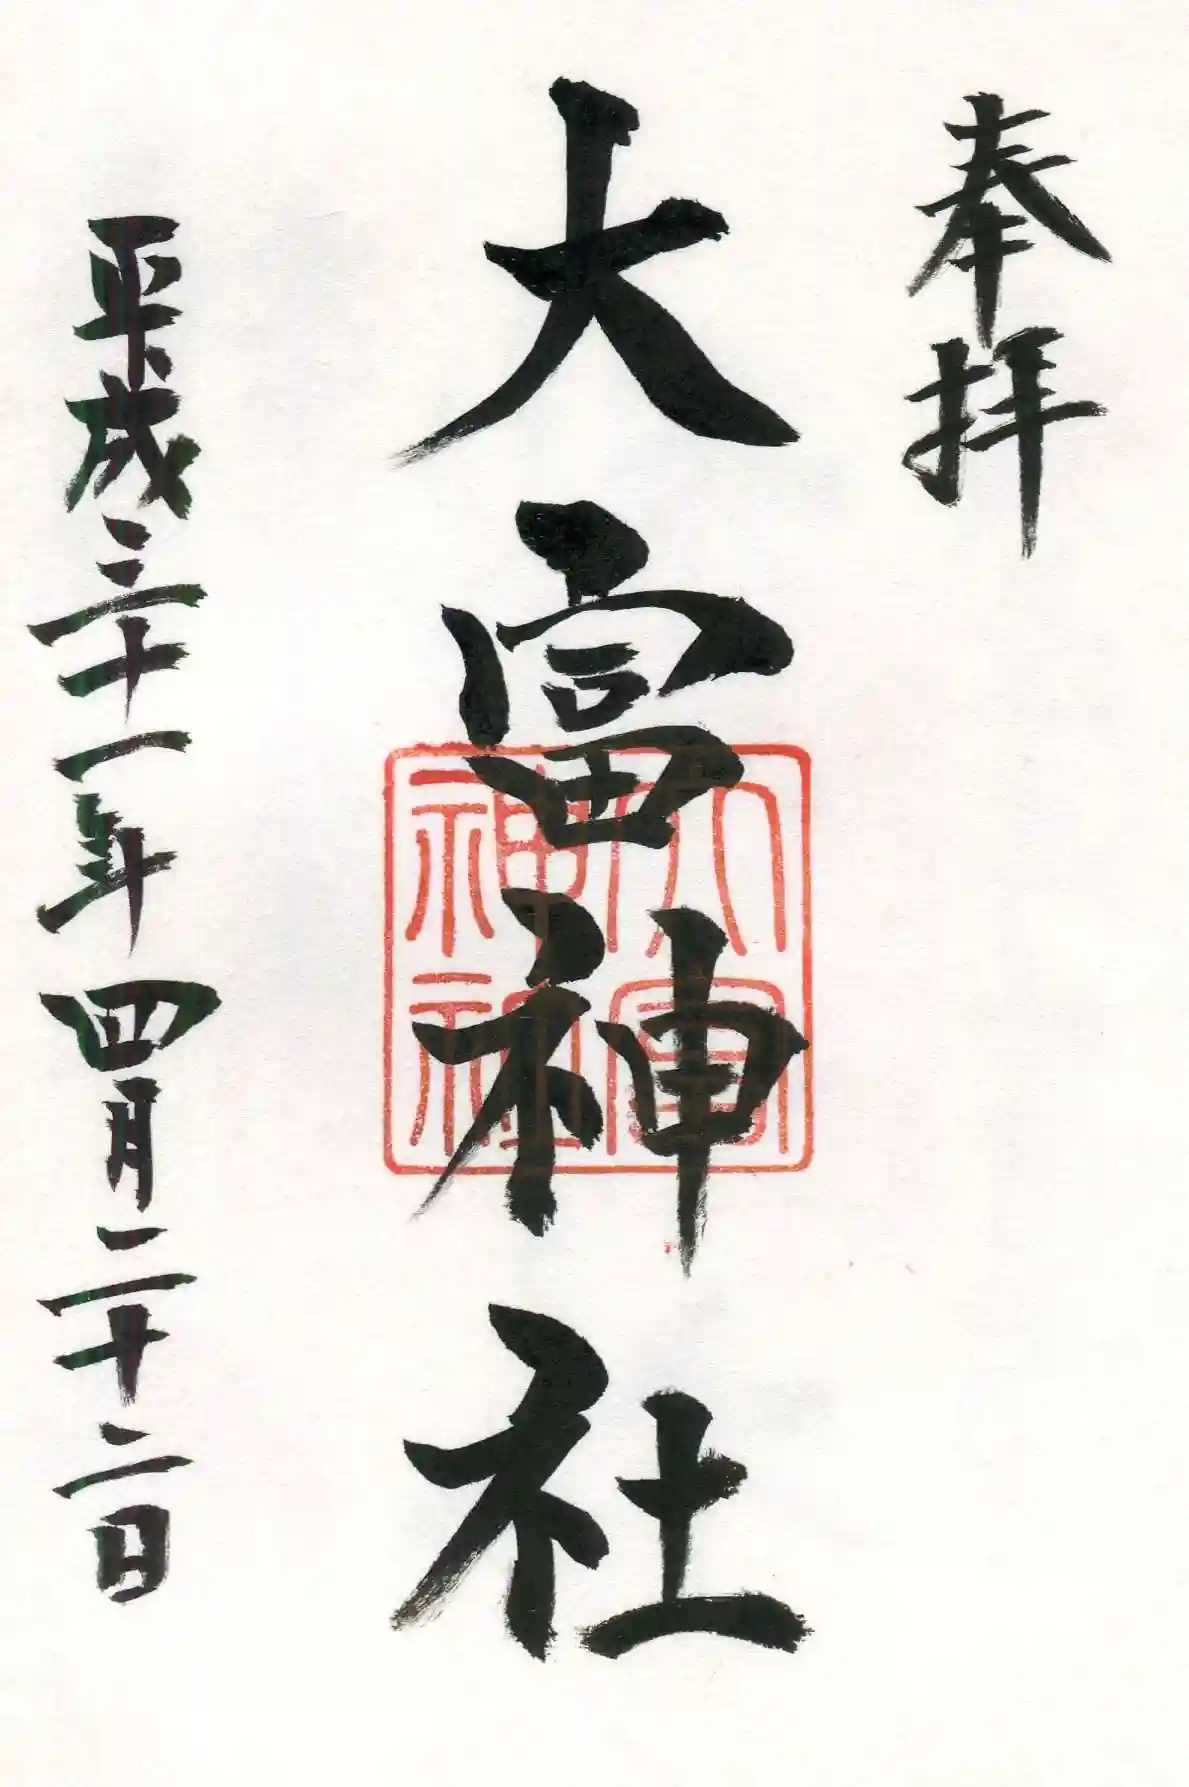 奉拝
大富神社
大富神社
平成三十一年四月二十二日